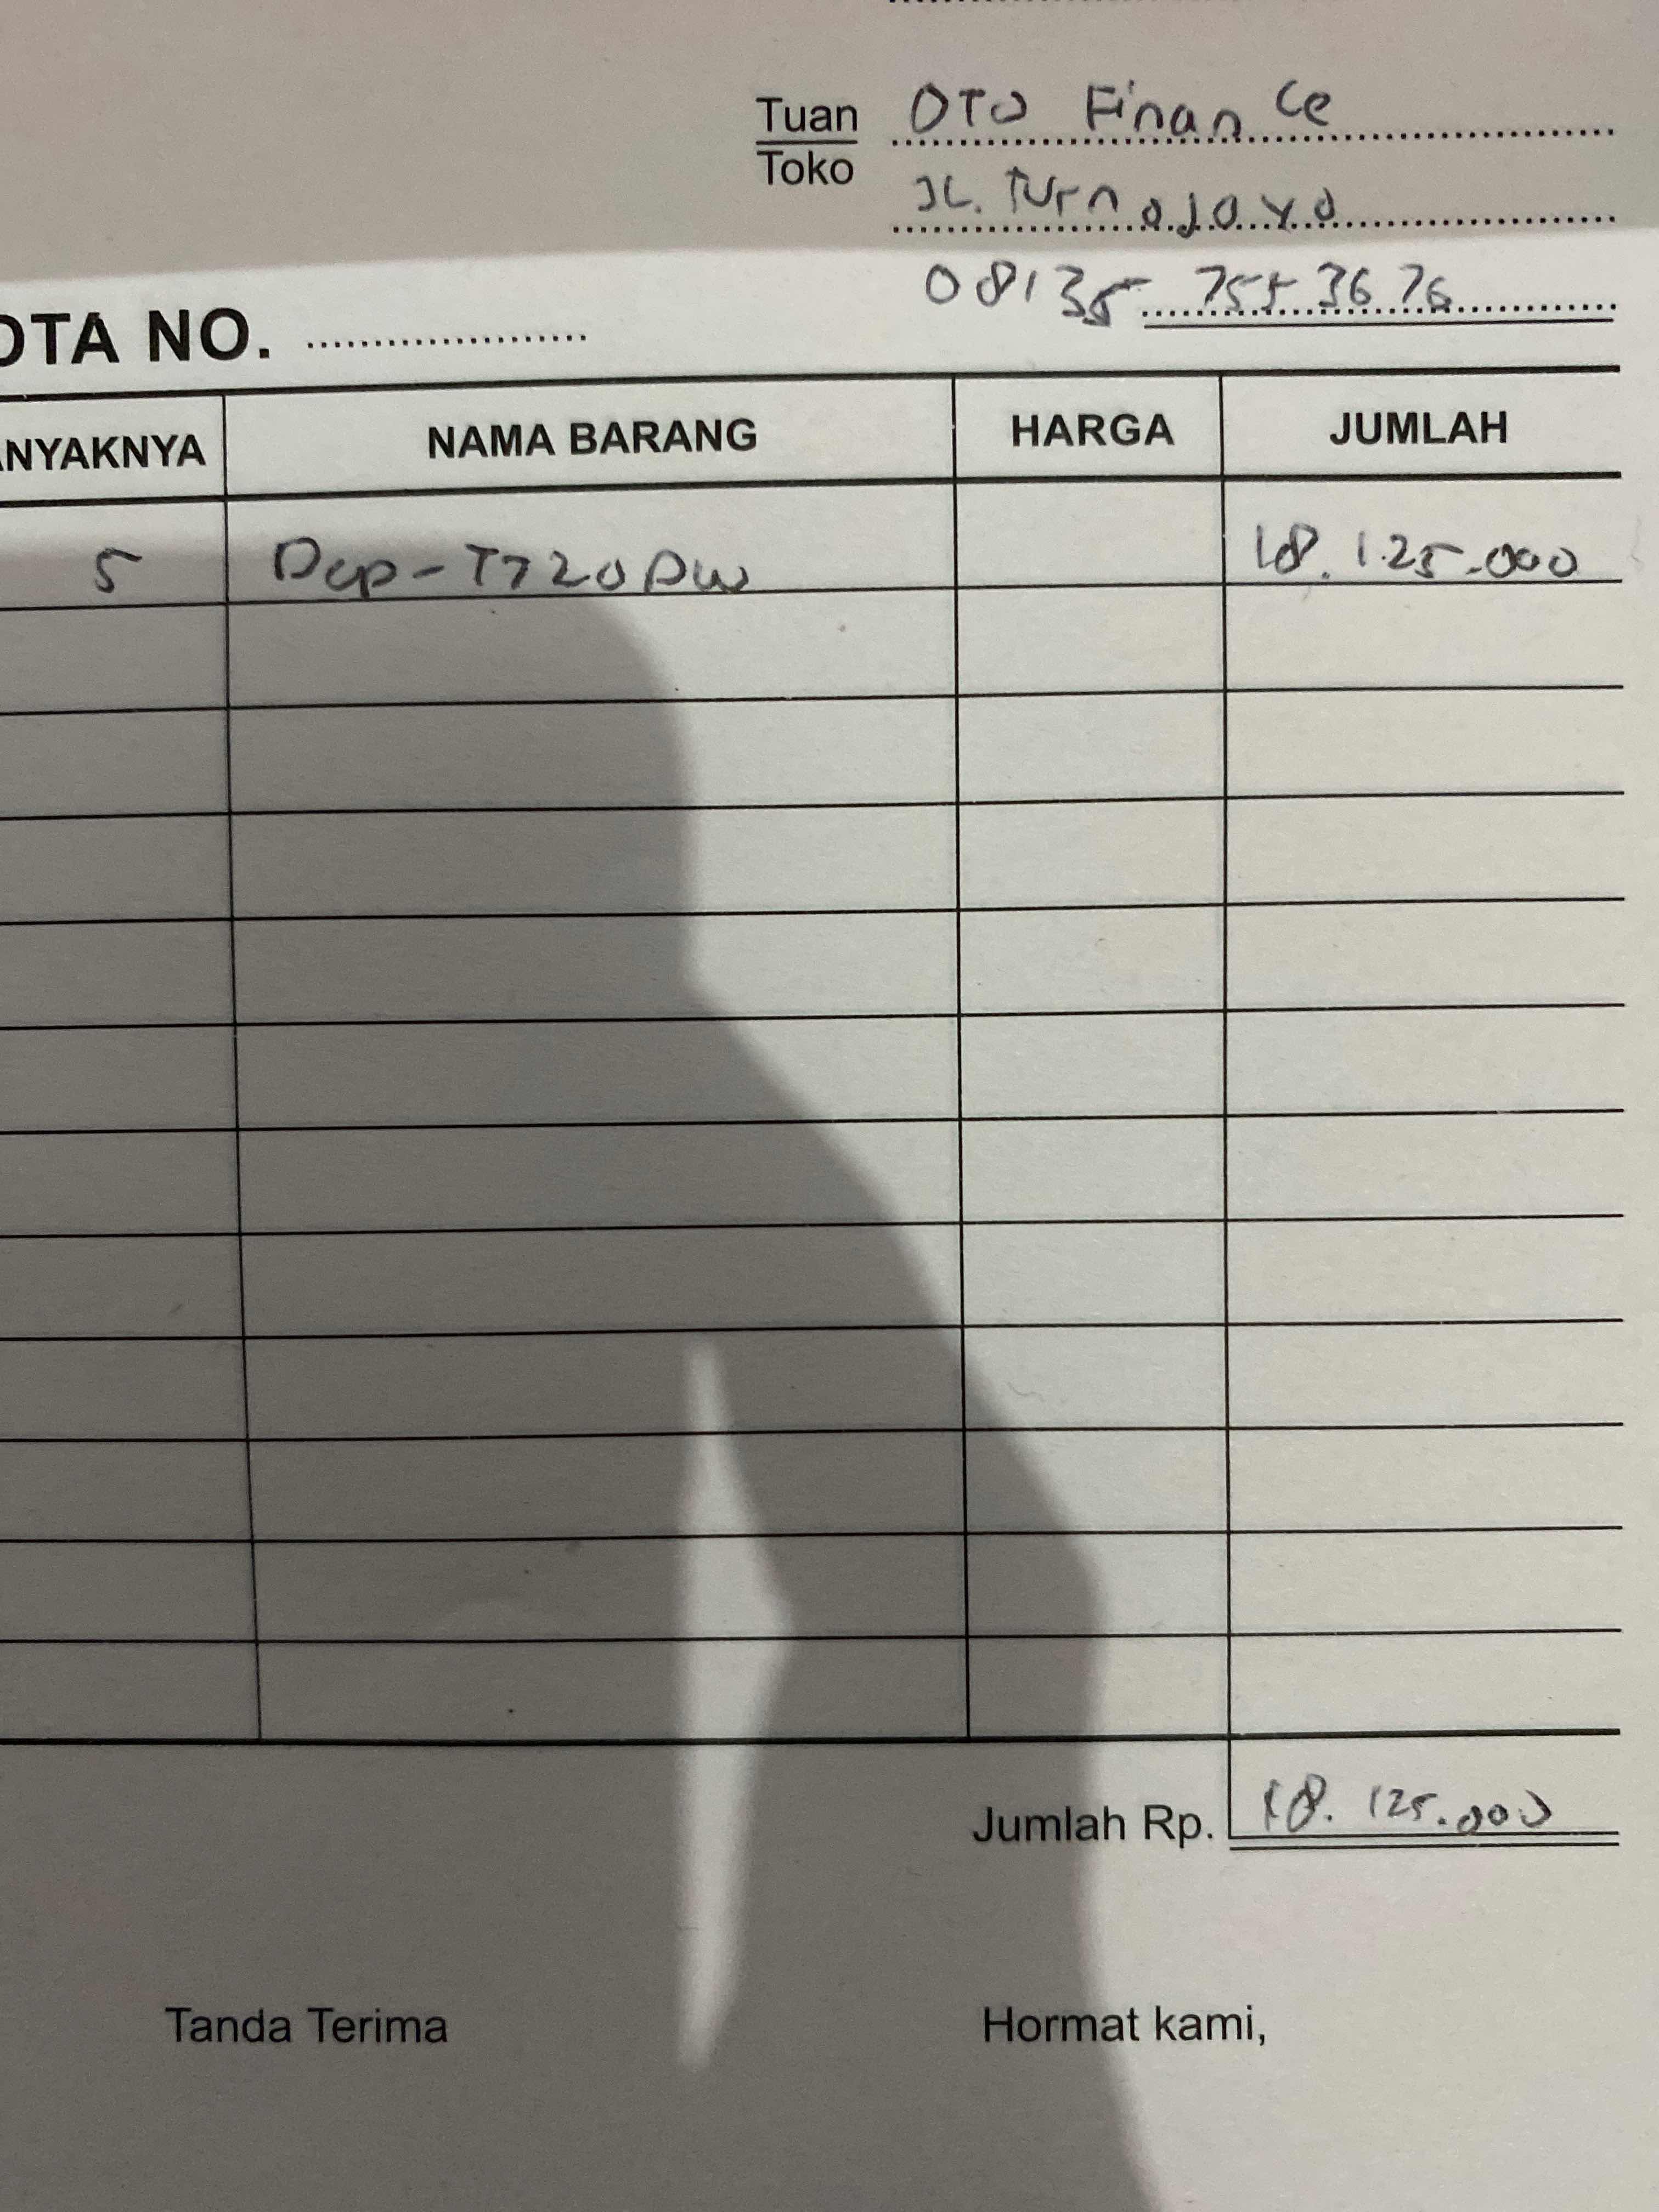 Tuan OTO Finance
Toko
JL. Turnojoyo
08135 755 3676
OTA NO. ....................
ANYAKNYA NAMA BARANG HARGA JUMLAH
5 Dcp-T720DW 18.125.000
Jumlah Rp. 18.125.000
Tanda Terima Hormat kami,